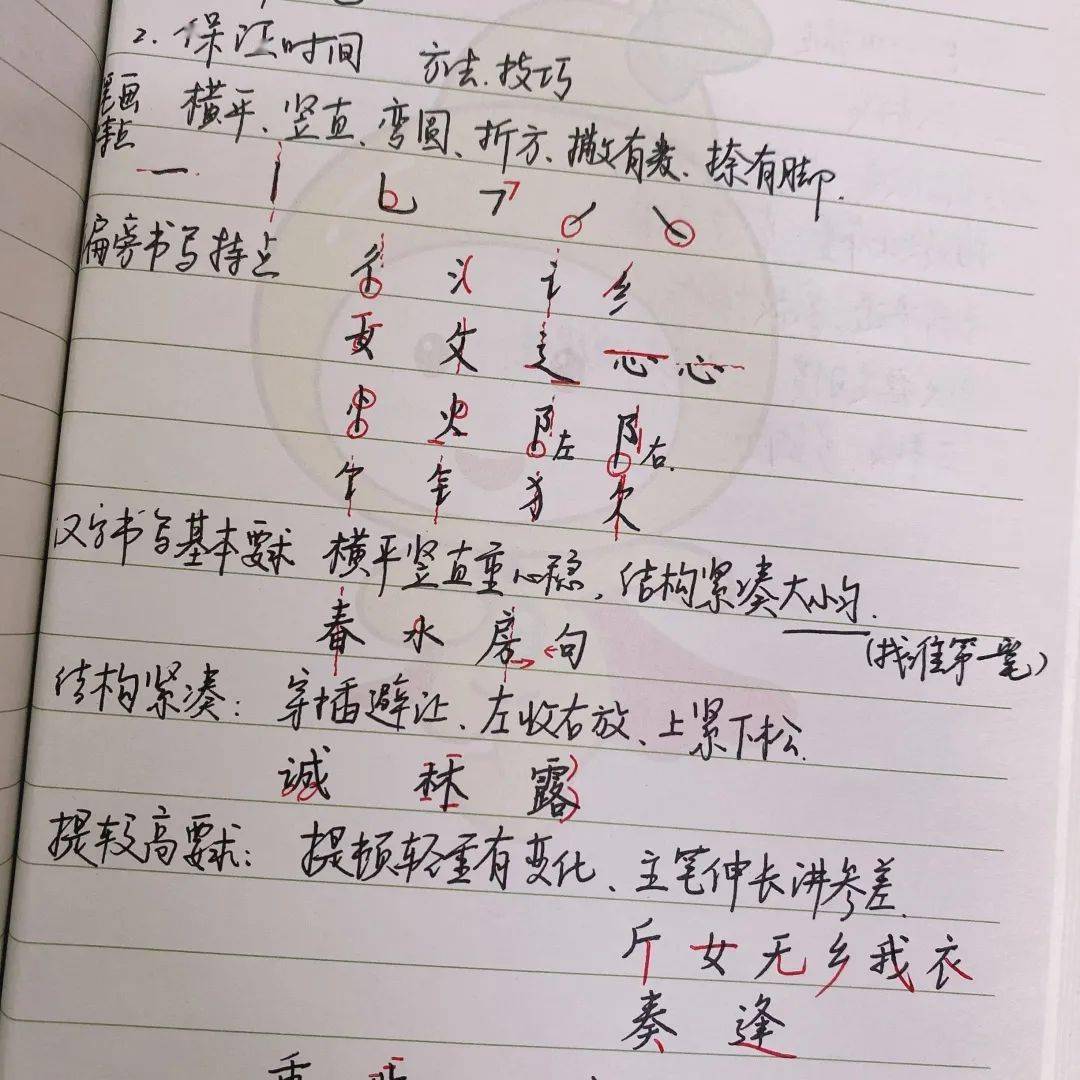 2. 保证时间 方法.技巧
笔画特点 横平、竖直、弯圆、折方、撇有尖、捺有脚.
偏旁书写特点
女 文 辶 心 心
火 火 阝左 阝右.
钅 犭 欠
汉字书写基本要求 横平竖直重心稳,结构紧凑大小匀.
春 水 房 句 (找准第一笔)
结构紧凑: 穿插避让、左收右放、上紧下松.
诚 林 露
提较高要求: 提顿轻重有变化、主笔伸长讲参差.
斤 女 无 乡 我 衣
奏 逢